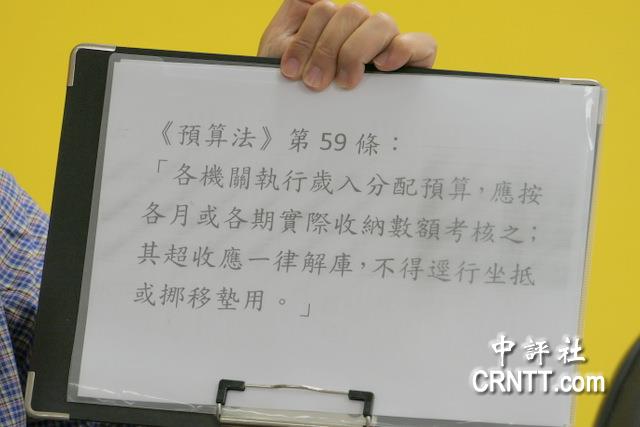 《預算法》第 59 條：
「各機關執行歲入分配預算，應按
各月或各期實際收納數額考核之；
其超收應一律解庫，不得逕行坐抵
或挪移墊用。」
中評社
CRNTT.com